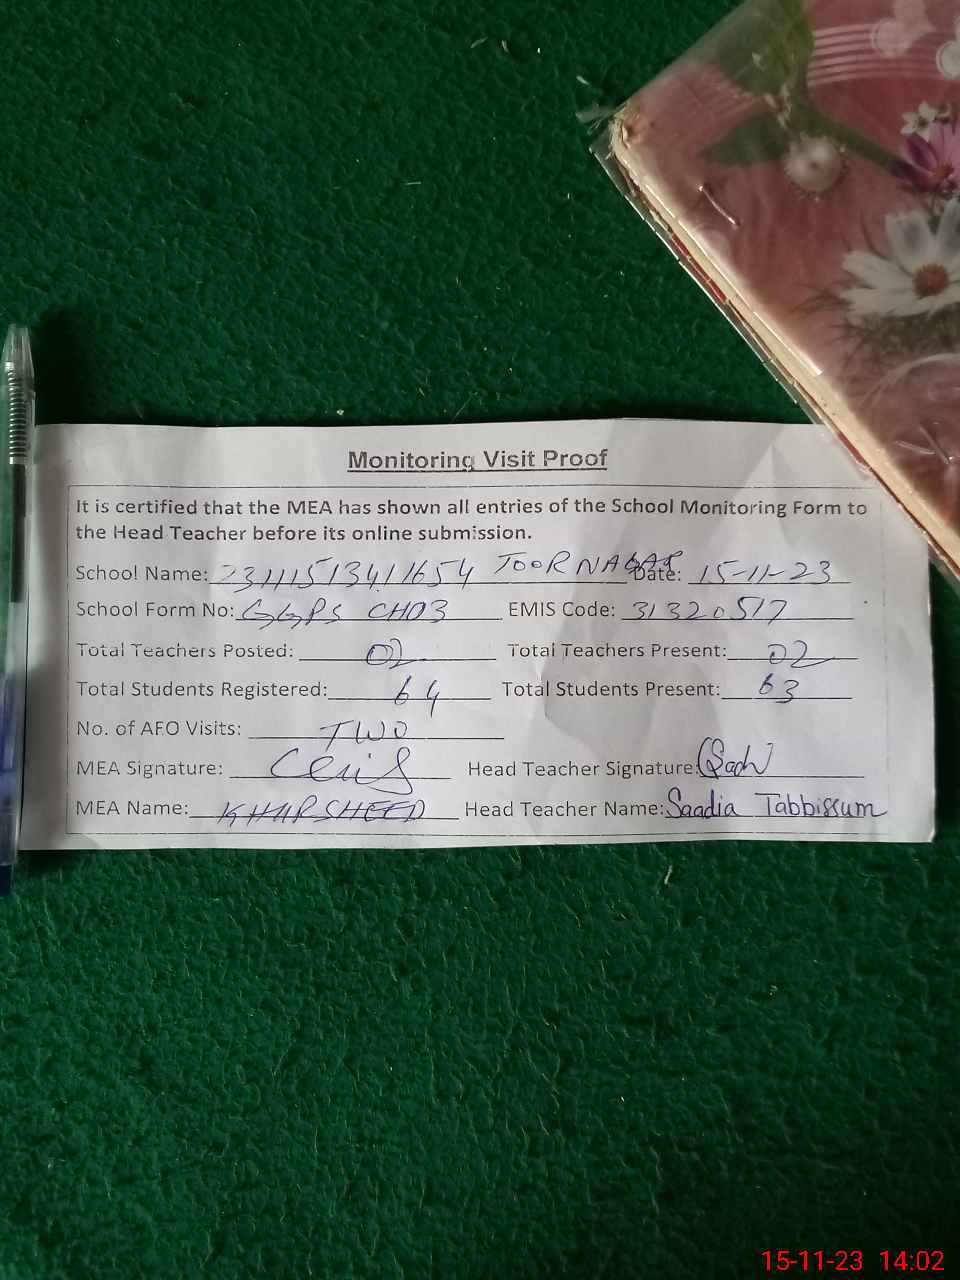 Monitoring Visit Proof
It is certified that the MEA has shown all entries of the School Monitoring Form to
the Head Teacher before its online submission.
School Name: 23111513411654 TOOR NAGAR Date: 15-11-23
School Form No: GGPS CHD3 EMIS Code: 31320517
Total Teachers Posted: 02 Total Teachers Present: 02
Total Students Registered: 64 Total Students Present: 63
No. of AFO Visits: TWO
MEA Signature: Head Teacher Signature:
MEA Name: KHURSHEED Head Teacher Name: Saadia Tabbissum
15-11-23 14:02